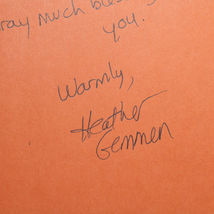 pray much bles
you.
Warmly,
Heather
Gemmen